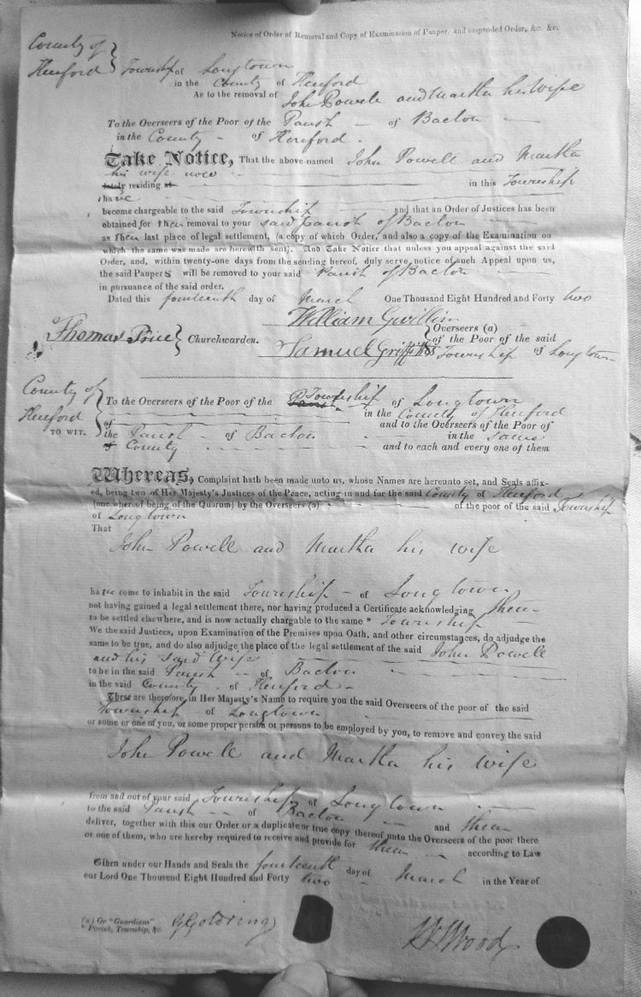 Notice of Order of Removal and Copy of Examination of Pauper, and suspended Order, &c. &c.
County of
Hereford } Township of Longtown
in the County of Hereford
As to the removal of John Powell and Martha his Wife
To the Overseers of the Poor of the Parish - of Bacton
in the County - of Hereford.
Take Notice, That the above-named John Powell and Martha
his wife now
lately residing at in this Township
have
become chargeable to the said Township and that an Order of Justices has been
obtained for their removal to your said parish of Bacton
as their last place of legal settlement, (a copy of which Order, and also a copy of the Examination on
which the same was made are herewith sent). And Take Notice that unless you appeal against the said
Order, and, within twenty-one days from the sending hereof, duly serve notice of such Appeal upon us,
the said Paupers will be removed to your said Parish of Bacton
in pursuance of the said order.
Dated this fourteenth day of March One Thousand Eight Hundred and Forty two
William Gwillim
Thomas Price } Churchwarden. Samuel Griffiths } Overseers (a) of the Poor of the said Township of Longtown
County of
Hereford
TO WIT. } To the Overseers of the Poor of the Parish Township of Longtown
in the County of Hereford
of and to the Overseers of the Poor of
the Parish - of Bacton in the same
of County and to each and every one of them
Whereas, Complaint hath been made unto us, whose Names are hereunto set, and Seals affix-
ed, being two of Her Majesty's Justices of the Peace, acting in and for the said County of Hereford
(one whereof being of the Quorum) by the Overseers (a) of the poor of the said Township
of Longtown
That
John Powell and Martha his wife
have come to inhabit in the said Township - of Longtown
not having gained a legal settlement there, nor having produced a Certificate acknowledging them
to be settled elsewhere, and is now actually chargeable to the same Township
We the said Justices, upon Examination of the Premises upon Oath, and other circumstances, do adjudge the
same to be true, and do also adjudge the place of the legal settlement of the said John Powell
and his said Wife
to be in the said Parish - of Bacton
in the said County - of Hereford -
These are therefore, in Her Majesty's Name to require you the said Overseers of the poor of the said
Township of Longtown
or some or one of you, or some proper person or persons to be employed by you, to remove and convey the said
John Powell and Martha his wife
from and out of your said Township of Longtown
to the said Parish - of Bacton and them
deliver, together with this our Order or a duplicate or true copy thereof unto the Overseers of the poor there
or one of them, who are hereby required to receive and provide for them according to Law
Given under our Hands and Seals the fourteenth day of March in the Year of
our Lord One Thousand Eight Hundred and Forty two
(a) Or "Guardian"
Parish, Township, &c.
Wood